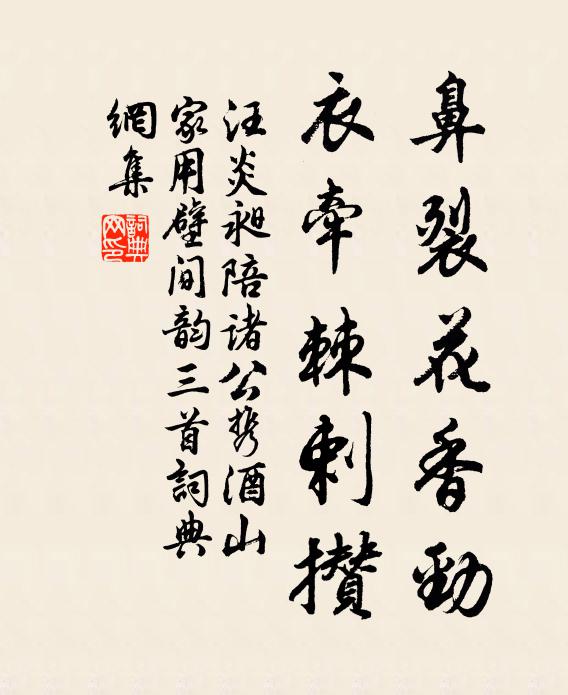 鼻裂花香勁
衣牽棘刺攢
汪炎昶陪諸公携酒山
家用壁间韵三首詞典
網集
詞典
网印